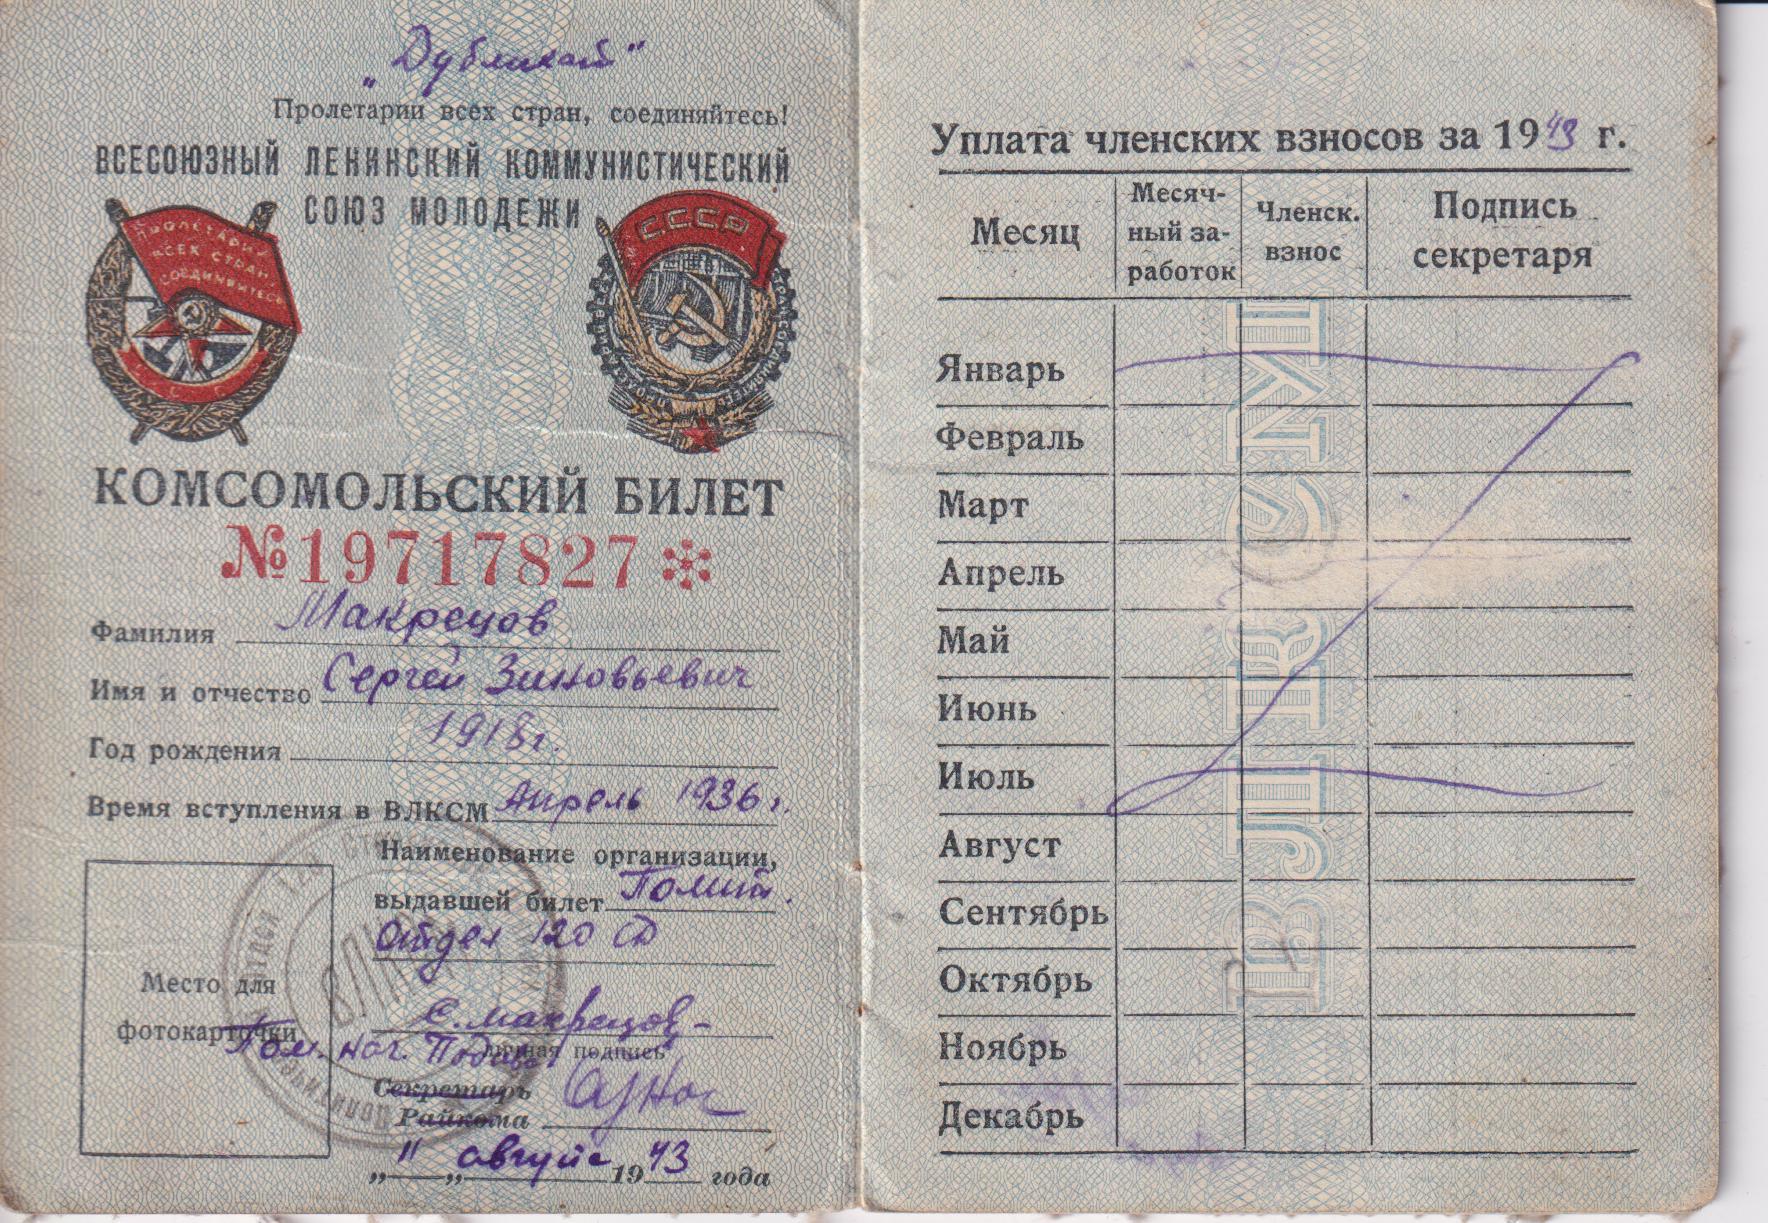 „Дубликат"
Пролетарии всех стран, соединяйтесь!
ВСЕСОЮЗНЫЙ ЛЕНИНСКИЙ КОММУНИСТИЧЕСКИЙ
СОЮЗ МОЛОДЕЖИ
ПРОЛЕТАРИИ
ВСЕХ СТРАН
СОЕДИНЯЙТЕСЬ
СССР
КОМСОМОЛЬСКИЙ БИЛЕТ
№19717827
Фамилия Макрецов
Имя и отчество Сергей Зиновьевич
Год рождения 1918г.
Время вступления в ВЛКСМ Апрель 1936г.
Наименование организации,
выдавшей билет Полит.
Отдел 120 СД
Место для
фотокарточки
С. Макрецов
личная подпись
Пом. нач.
Секретарь
Райкома
„11„ августа 1943 года
Уплата членских взносов за 1943 г.
Месяц
Месячный заработок
Членск. взнос
Подпись секретаря
Январь
Февраль
Март
Апрель
Май
Июнь
Июль
Август
Сентябрь
Октябрь
Ноябрь
Декабрь
ВЛКСМ